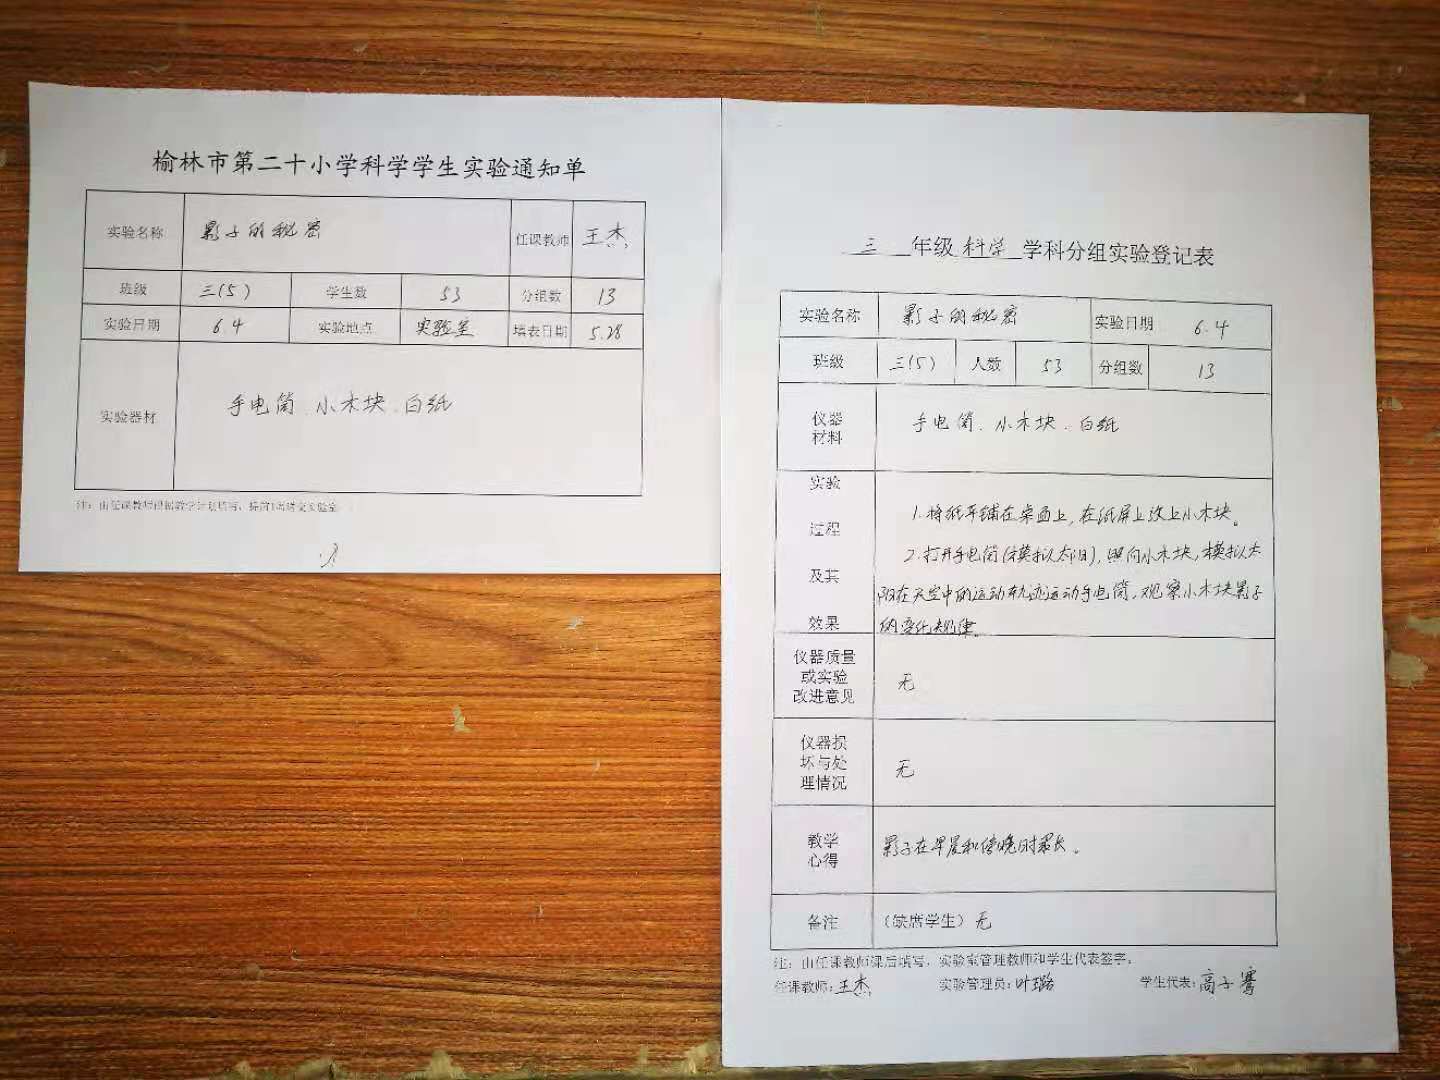 榆林市第二十小学科学学生实验通知单
实验名称 影子的秘密 任课教师 王杰
班级 三(5) 学生数 53 分组数 13
实验日期 6.4 实验地点 实验室 填表日期 5.28
实验器材 手电筒、小木块、白纸
注：由任课教师根据教学计划填写，提前1周送交实验室
三 年级 科学 学科分组实验登记表
实验名称 影子的秘密 实验日期 6.4
班级 三(5) 人数 53 分组数 13
仪器
材料
手电筒、小木块、白纸
实验
过程
及其
效果
1.将纸平铺在桌面上，在纸屏上放上小木块。
2.打开手电筒(模拟太阳)，照向小木块，模拟太
阳在天空中的运动轨迹运动手电筒，观察小木块影子
的变化规律。
仪器质量
或实验
改进意见
无
仪器损
坏与处
理情况
无
教学
心得
影子在早晨和傍晚时最长。
备注 (缺席学生) 无
注：由任课教师课后填写，实验室管理教师和学生代表签字。
任课教师：王杰 实验管理员：叶璐 学生代表：高子骞